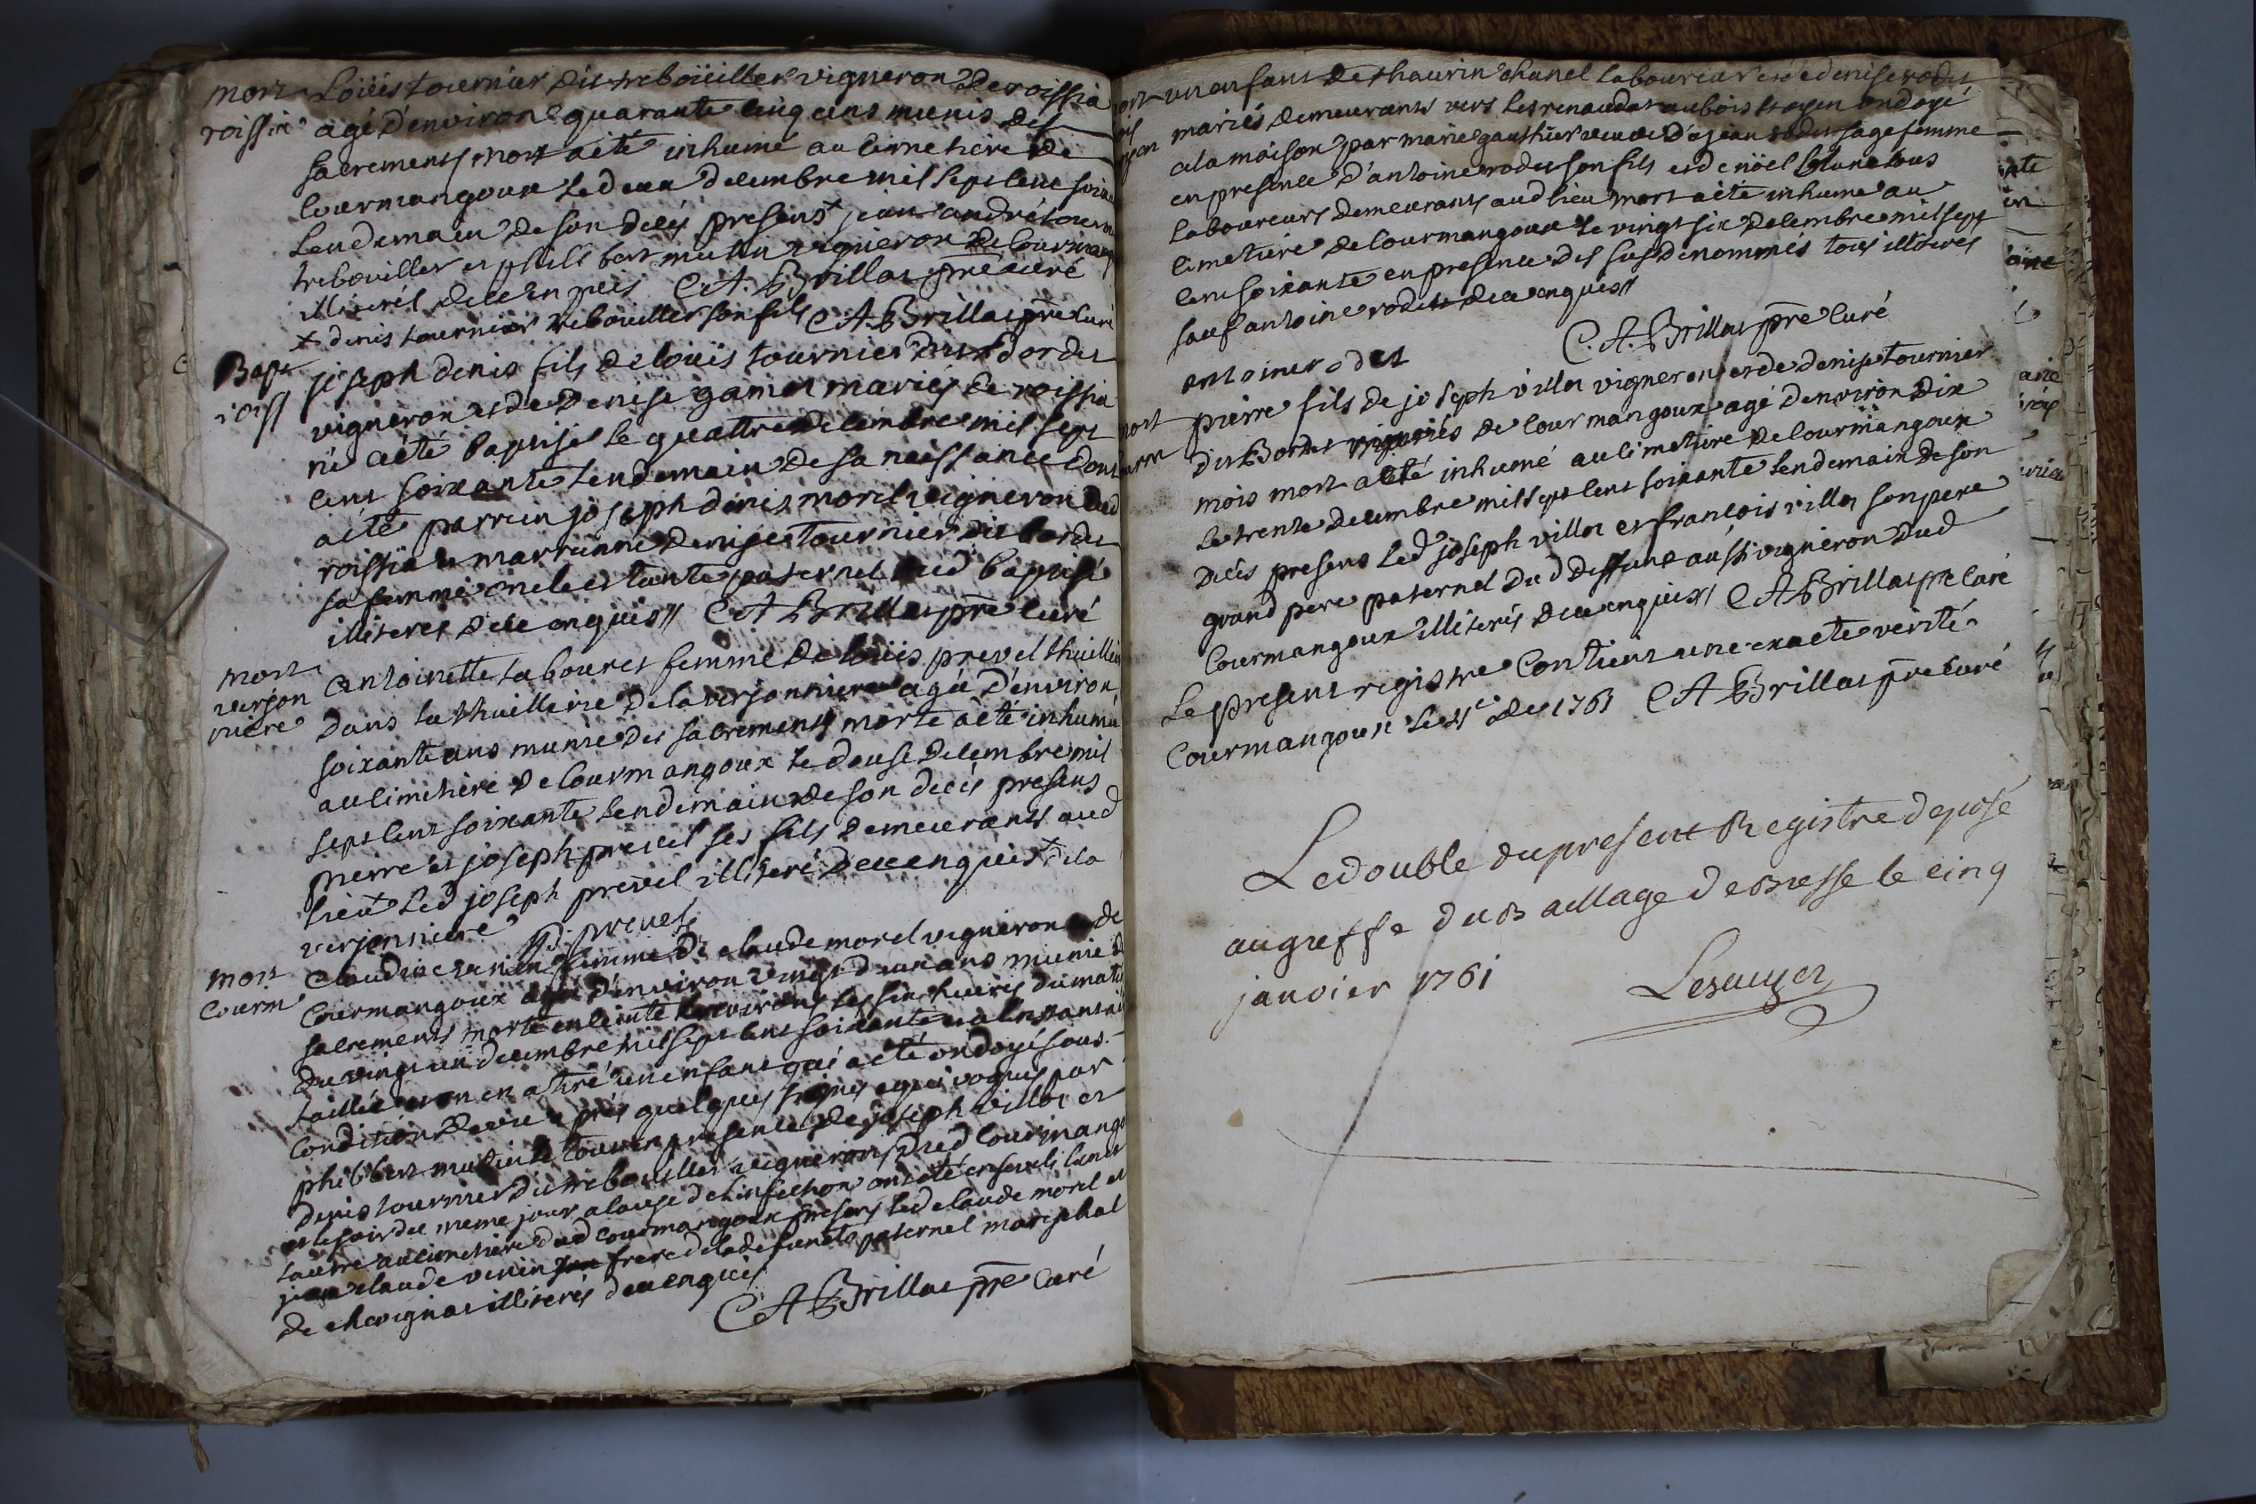 mort
roissia
Loüis tournier dit treboüiller vigneron de roissia
agé d'environ quarante cinq ans munis des
sacrements mort a été inhumé au cimetiere de
Courmangoux le deux decembre mil sept cent soixante
lendemain de son décés presens + jean andré tournier
trebouiller et philibert mutin vigneron de Courmang
illiterés de ce enquis C. A. Brillat pre curé
+ denis tournier trebouiller son fils C A Brillat pre curé
Bapt
roiss
joseph denis fils de loüis tournier dit bordet
vigneron et de denise gamet mariés de roissia
né a été baptisé le quattre decembre mil sept
cent soixante lendemain de sa naissance dont
a été parrein joseph denis morel vigneron dud
roissia et marrainne denise tournier dit bordet
sa femme oncle et tante paternel dud baptisé
illiteres de ce enquis // C A Brillat pre curé
mort
verjon
niere
Antoinette labouret femme de loüis prevel thuillier
dans la thuillerie de la verjonniere agée d'environ
soixante ans munie des sacrements morte a été inhumée
au cimetiere de Courmangoux le douse decembre mil
sept cent soixante lendemain de son décés presens
pierre et joseph prevel ses fils demeurants aud
lieu led joseph prevel illiteré de ce enquis + de la
verjonniere P. prevel
mort
Courm
Claudine venin femme de claude morel vigneron de
Courmangoux agée d'environ vingt deux ans munie des
sacrements morte enceinte environs les six heures du matin
du vingt un decembre mil sept cent soixante et a l'instant
taillée et on en a tiré un enfant qui a été ondoyé sous
condition de vie après quelques signes equivoques par
philibert mutin le tout en presence de joseph villet et
denis tournier dit trebouiller vignerons dud Courmangoux
et le soir du meme jour a cause de l'infection ont été ensevelis l'un et
l'autre au cimetiere dud Courmangoux presens led claude morel et
claude venin frere de la defuncte paternel marechal
de chevignat illiterés de ce enquis
C A Brillat pre Curé
mort
un enfant de thaurin chanel laboureur et de denise rodet
mariés demeurants vers les renaudat au bois
a la maison par marie gauthier veuve d' rodet sage femme
en presence d'antoine rodet son fils et de nöel tous
laboureurs demeurants aud lieu mort a été inhumé au
cimetiere de Courmangoux le vingt six decembre mil sept
cent soixante en presence des susdenommés tous illiterés
sauf antoine rodet de ce enquis //
C. A. Brillat pre Curé
antoine rodet
mort
pierre fils de joseph villet vigneron et de denise tournier
dit Bordet mariés de Courmangoux agé d'environ dix
mois mort a été inhumé au cimetiere de Courmangoux
le trente decembre mil sept cent soixante lendemain de son
décés presens led joseph villet et francois villet son pere
grand pere paternel dud deffunt aussi vigneron dud
Courmangoux illiterés de ce enquis // C A Brillat pre Curé
Le present registre Contient une exacte verité
Courmangoux le de 1761 C A Brillat pre Curé
Le double du present Registre deposé
au greffe du Baillage de Bresse le cinq
janvier 1761